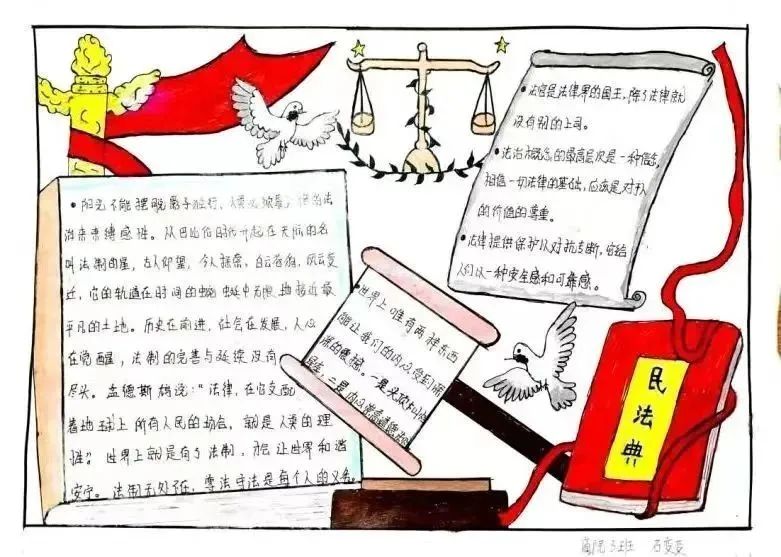 • 阳光不能摆脱影子独行，人类必须
法治来束缚感性。从巴比伦时代升起在天际的名
叫法制的星，古人仰望，今人揣崇，白云苍狗，风云变
迁，它的轨道在时间的蜿蜒中无限地接近最
平凡的土地。历史在前进，社会在发展，人心
在觉醒，法制的完善与延续没有
尽头。孟德斯鸠说：“法律，在它支配
着地球上所有人民的场合，就是人类的理
性。”世界上就是有了法制，才会让世界和谐
安宁。法制无处不在，尊法守法是每个人的义务。
• 世界上唯有两样东西
能让我们的内心受到深
深的震撼。一是头顶
星空，二是内心
• 法官是法律界的国王，除了法律就
没有别的上司。
• 法治概念的最高层次是一种信念，
相信一切法律的基础，应该是对人
的价值的尊重。
• 法律提供保护以对抗专断，它给
人们以一种安全感和可靠感。
民法典
3班